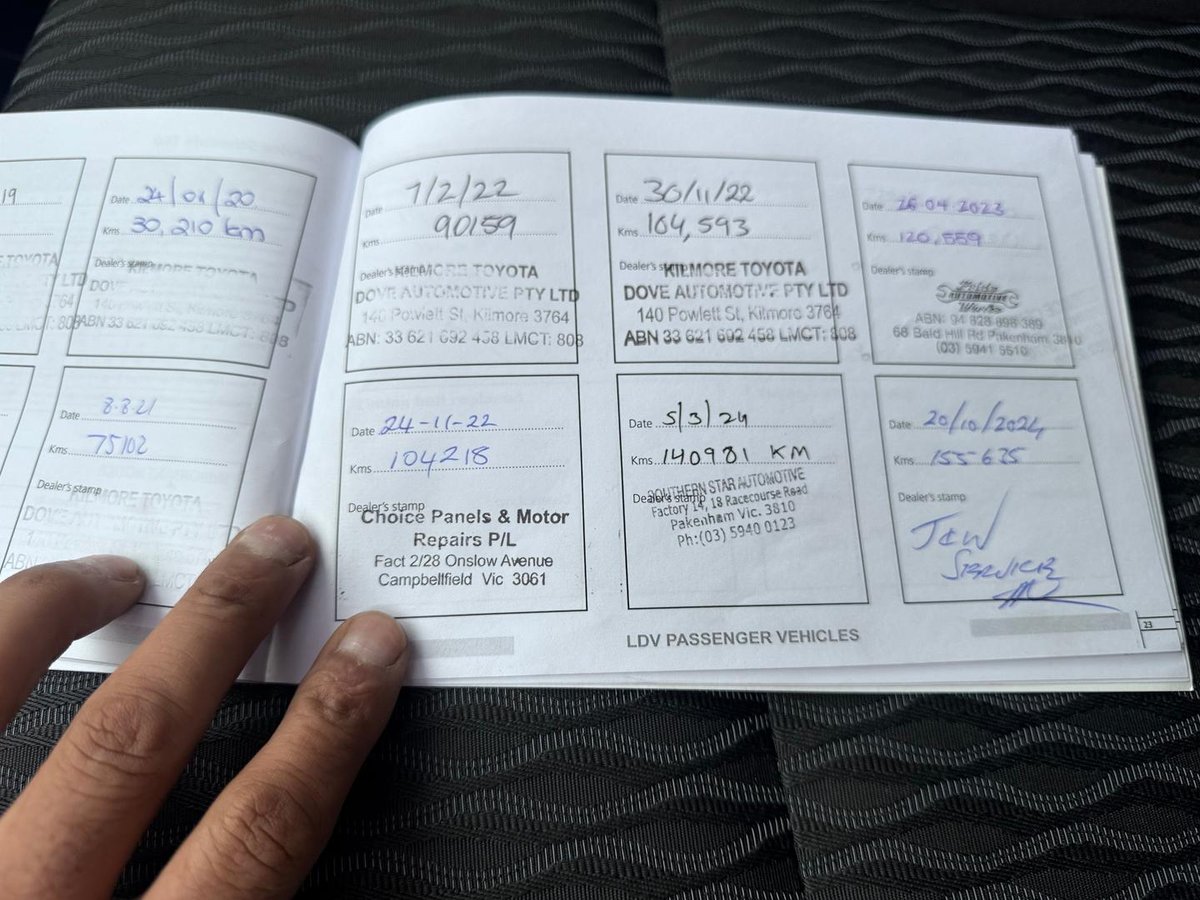 19
TOYOTA
TY LTD
764
LMCT: 808
Date 24/01/20
Kms 30,210 km
Dealer's stamp
KILMORE TOYOTA
DOVE
140
ABN 33 621 692 458 LMCT: 808
Date 8.8.21
Kms 75102
Dealer's stamp
KILMORE TOYOTA
DOVE
ABN
LMCT
Date 7/2/22
Kms 90159
Dealer's stamp
KILMORE TOYOTA
DOVE AUTOMOTIVE PTY LTD
140 Powlett St, Kilmore 3764
ABN: 33 621 692 458 LMCT: 808
Date 30/11/22
Kms 104,593
Dealer's stamp
KILMORE TOYOTA
DOVE AUTOMOTIVE PTY LTD
140 Powlett St, Kilmore 3764
ABN 33 621 692 458 LMCT: 808
Date 26 04 2023
Kms 120,559
Dealer's stamp
AUTOMOTIVE
Works
ABN: 94 828 898 389
68 Bald Hill Rd Pakenham 3810
(03) 5941 5510
Date 24-11-22
Kms 104218
Dealer's stamp
Choice Panels & Motor
Repairs P/L
Fact 2/28 Onslow Avenue
Campbellfield Vic 3061
Date 5/3/24
Kms 140981 KM
Dealer's stamp
SOUTHERN STAR AUTOMOTIVE
Factory 14, 18 Racecourse Road
Pakenham Vic. 3810
Ph:(03) 5940 0123
Date 20/10/2024
Kms 155635
Dealer's stamp
J&W
SERVICE
LDV PASSENGER VEHICLES
23